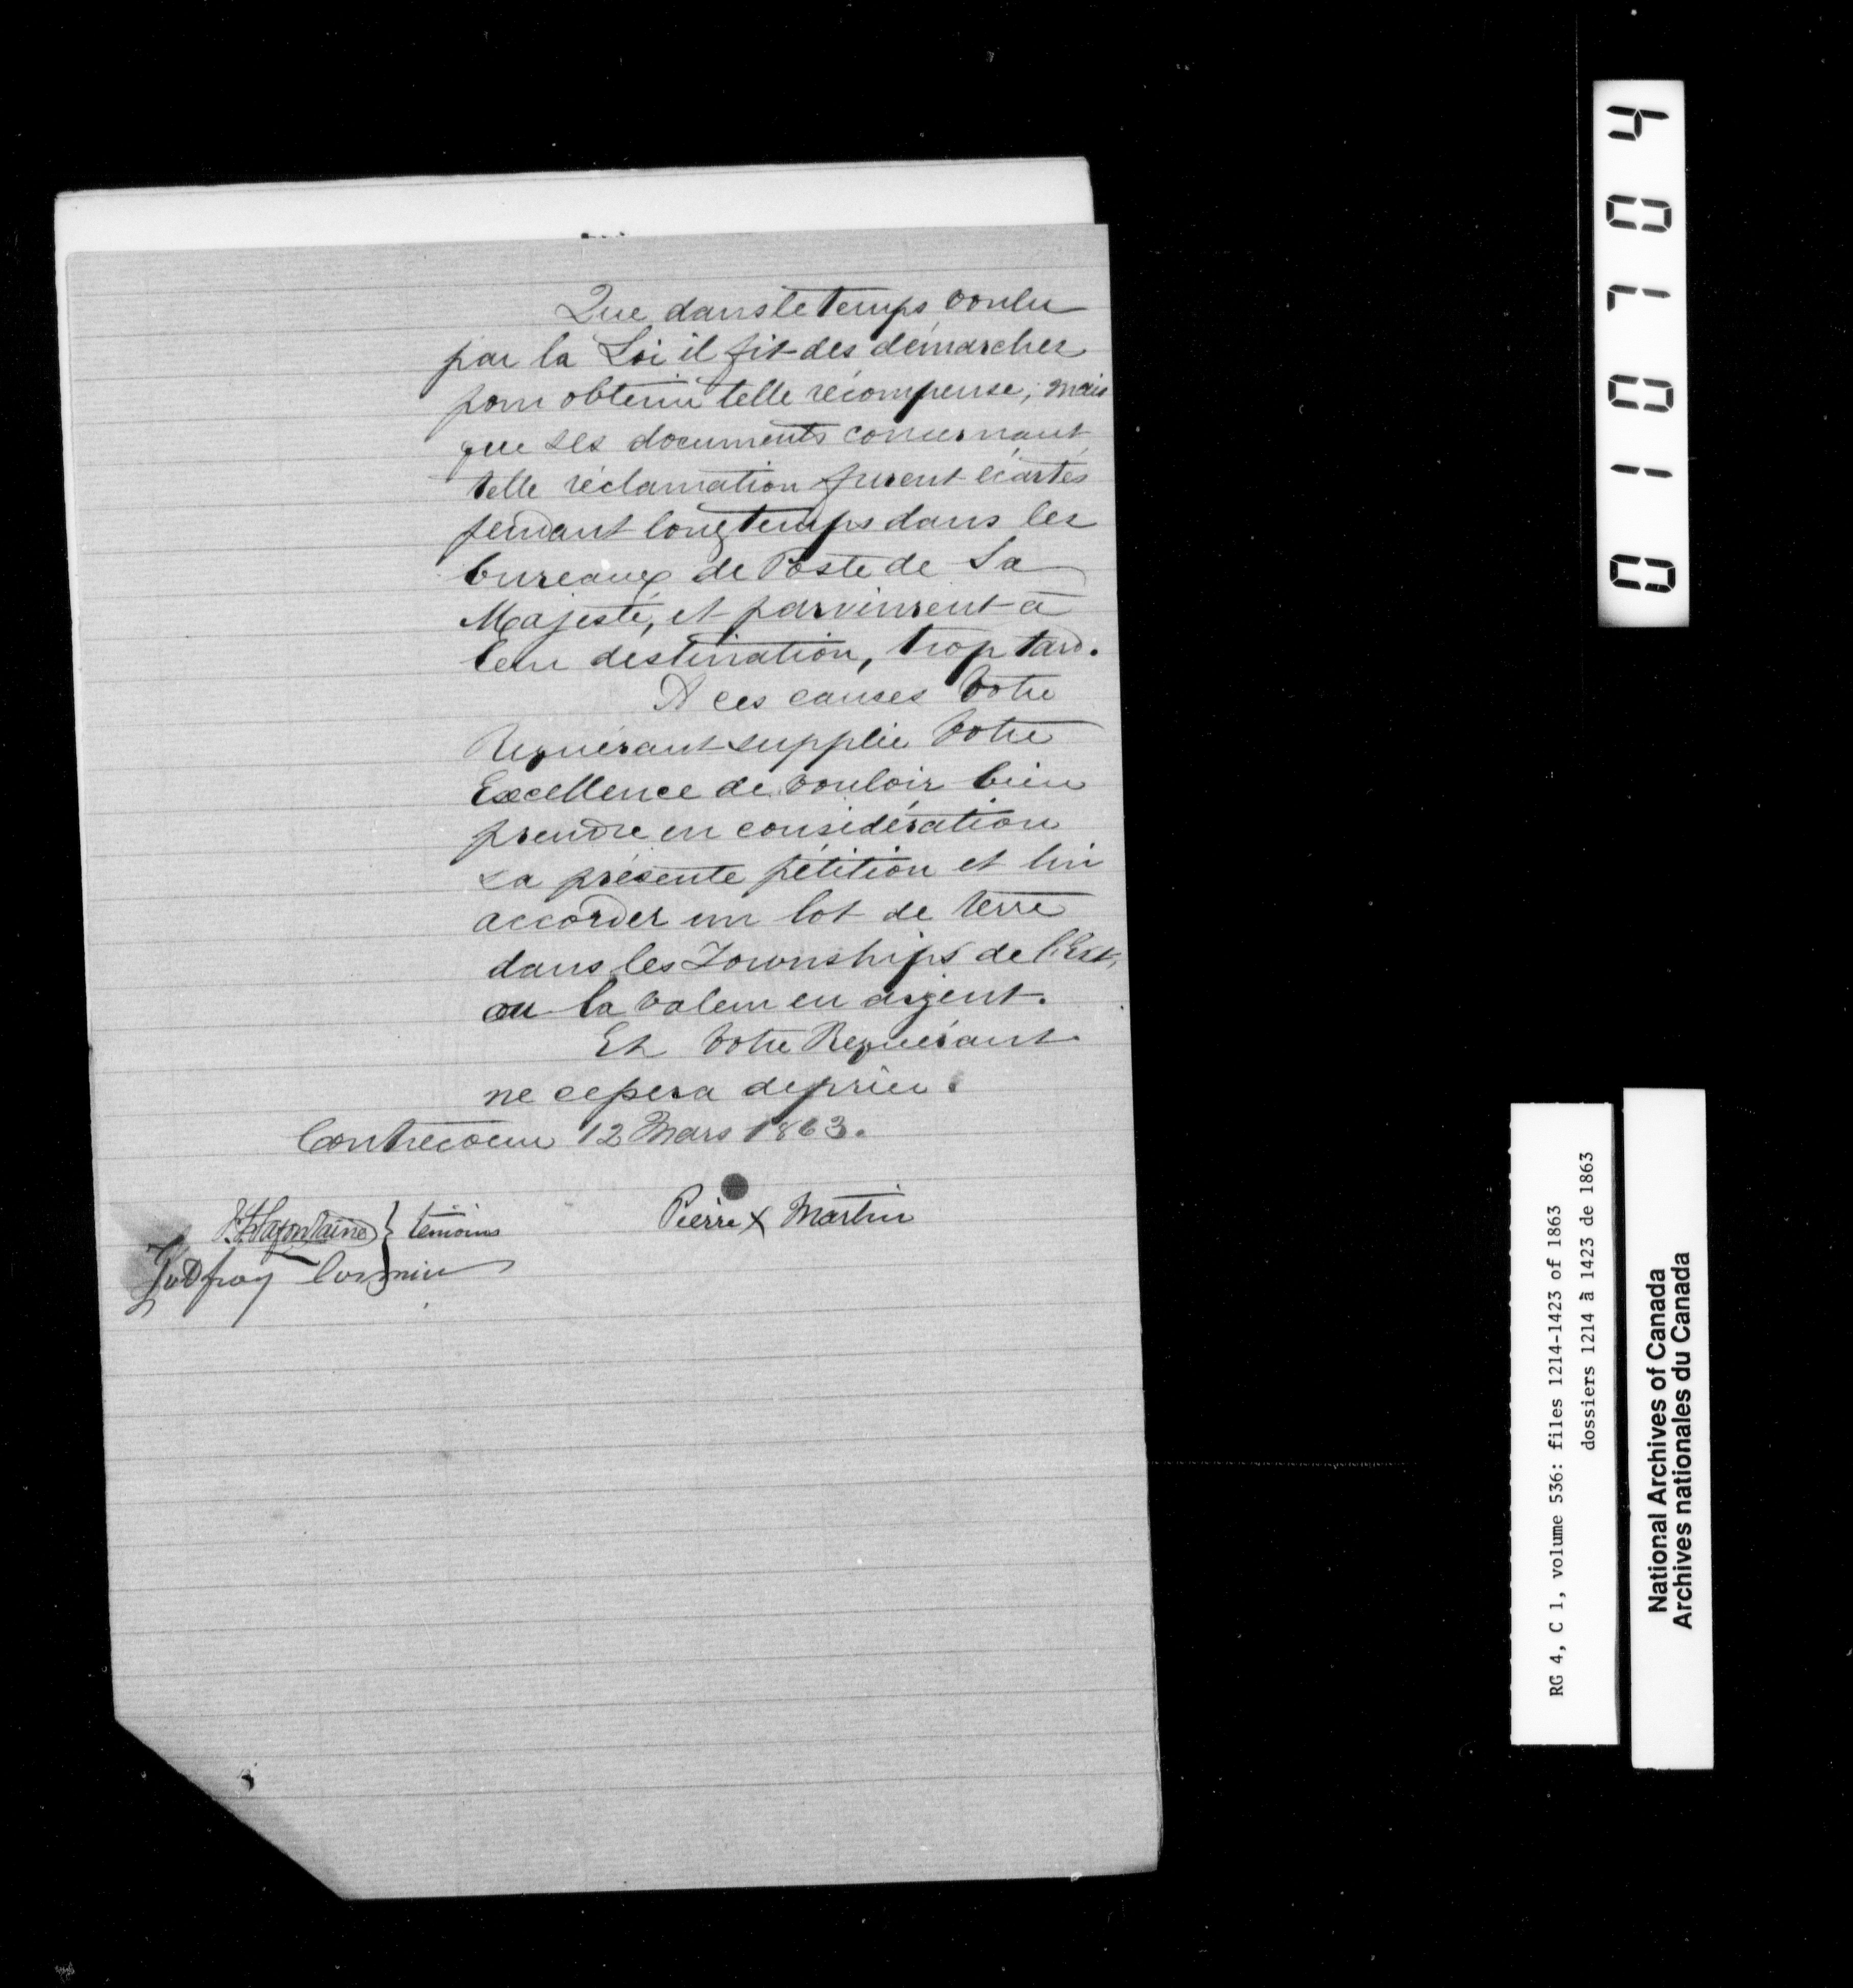 Que dans le temps voulu
par la Loi il fit des démarches
pour obtenir telle récompense, mais
que ses documents concernant
telle réclamation furent écartés
pendant longtemps dans les
bureaux de Poste de Sa
Majesté, et parvinrent à
leur destination, trop tard.
A ces causes Votre
Requérant supplie Votre
Excellence de vouloir bien
prendre en considération
sa présente pétition et lui
accorder un lot de terre
dans les Townships de l'Est,
ou la valeur en argent.
Et Votre Requérant
ne cessera de prier.
Contrecoeur 12 Mars 1863.
Pierre X Martin
Lafontaine } témoins
Godfroy Cormier
010704
RG 4, C 1, volume 536: files 1214-1423 of 1863
dossiers 1214 à 1423 de 1863
National Archives of Canada
Archives nationales du Canada